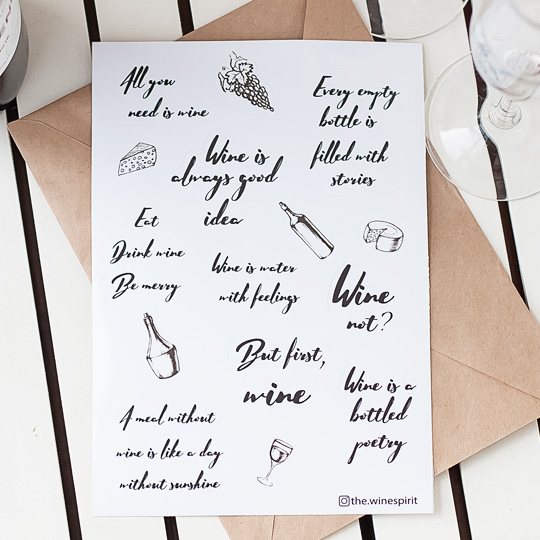 All you
need is wine
Every empty
bottle is
filled with
stories
Wine is
always good
idea
Eat
Drink wine
Be merry
Wine is water
with feelings
Wine
not?
But first,
wine
Wine is a
bottled
poetry
A meal without
wine is like a day
without sunshine
the.winespirit